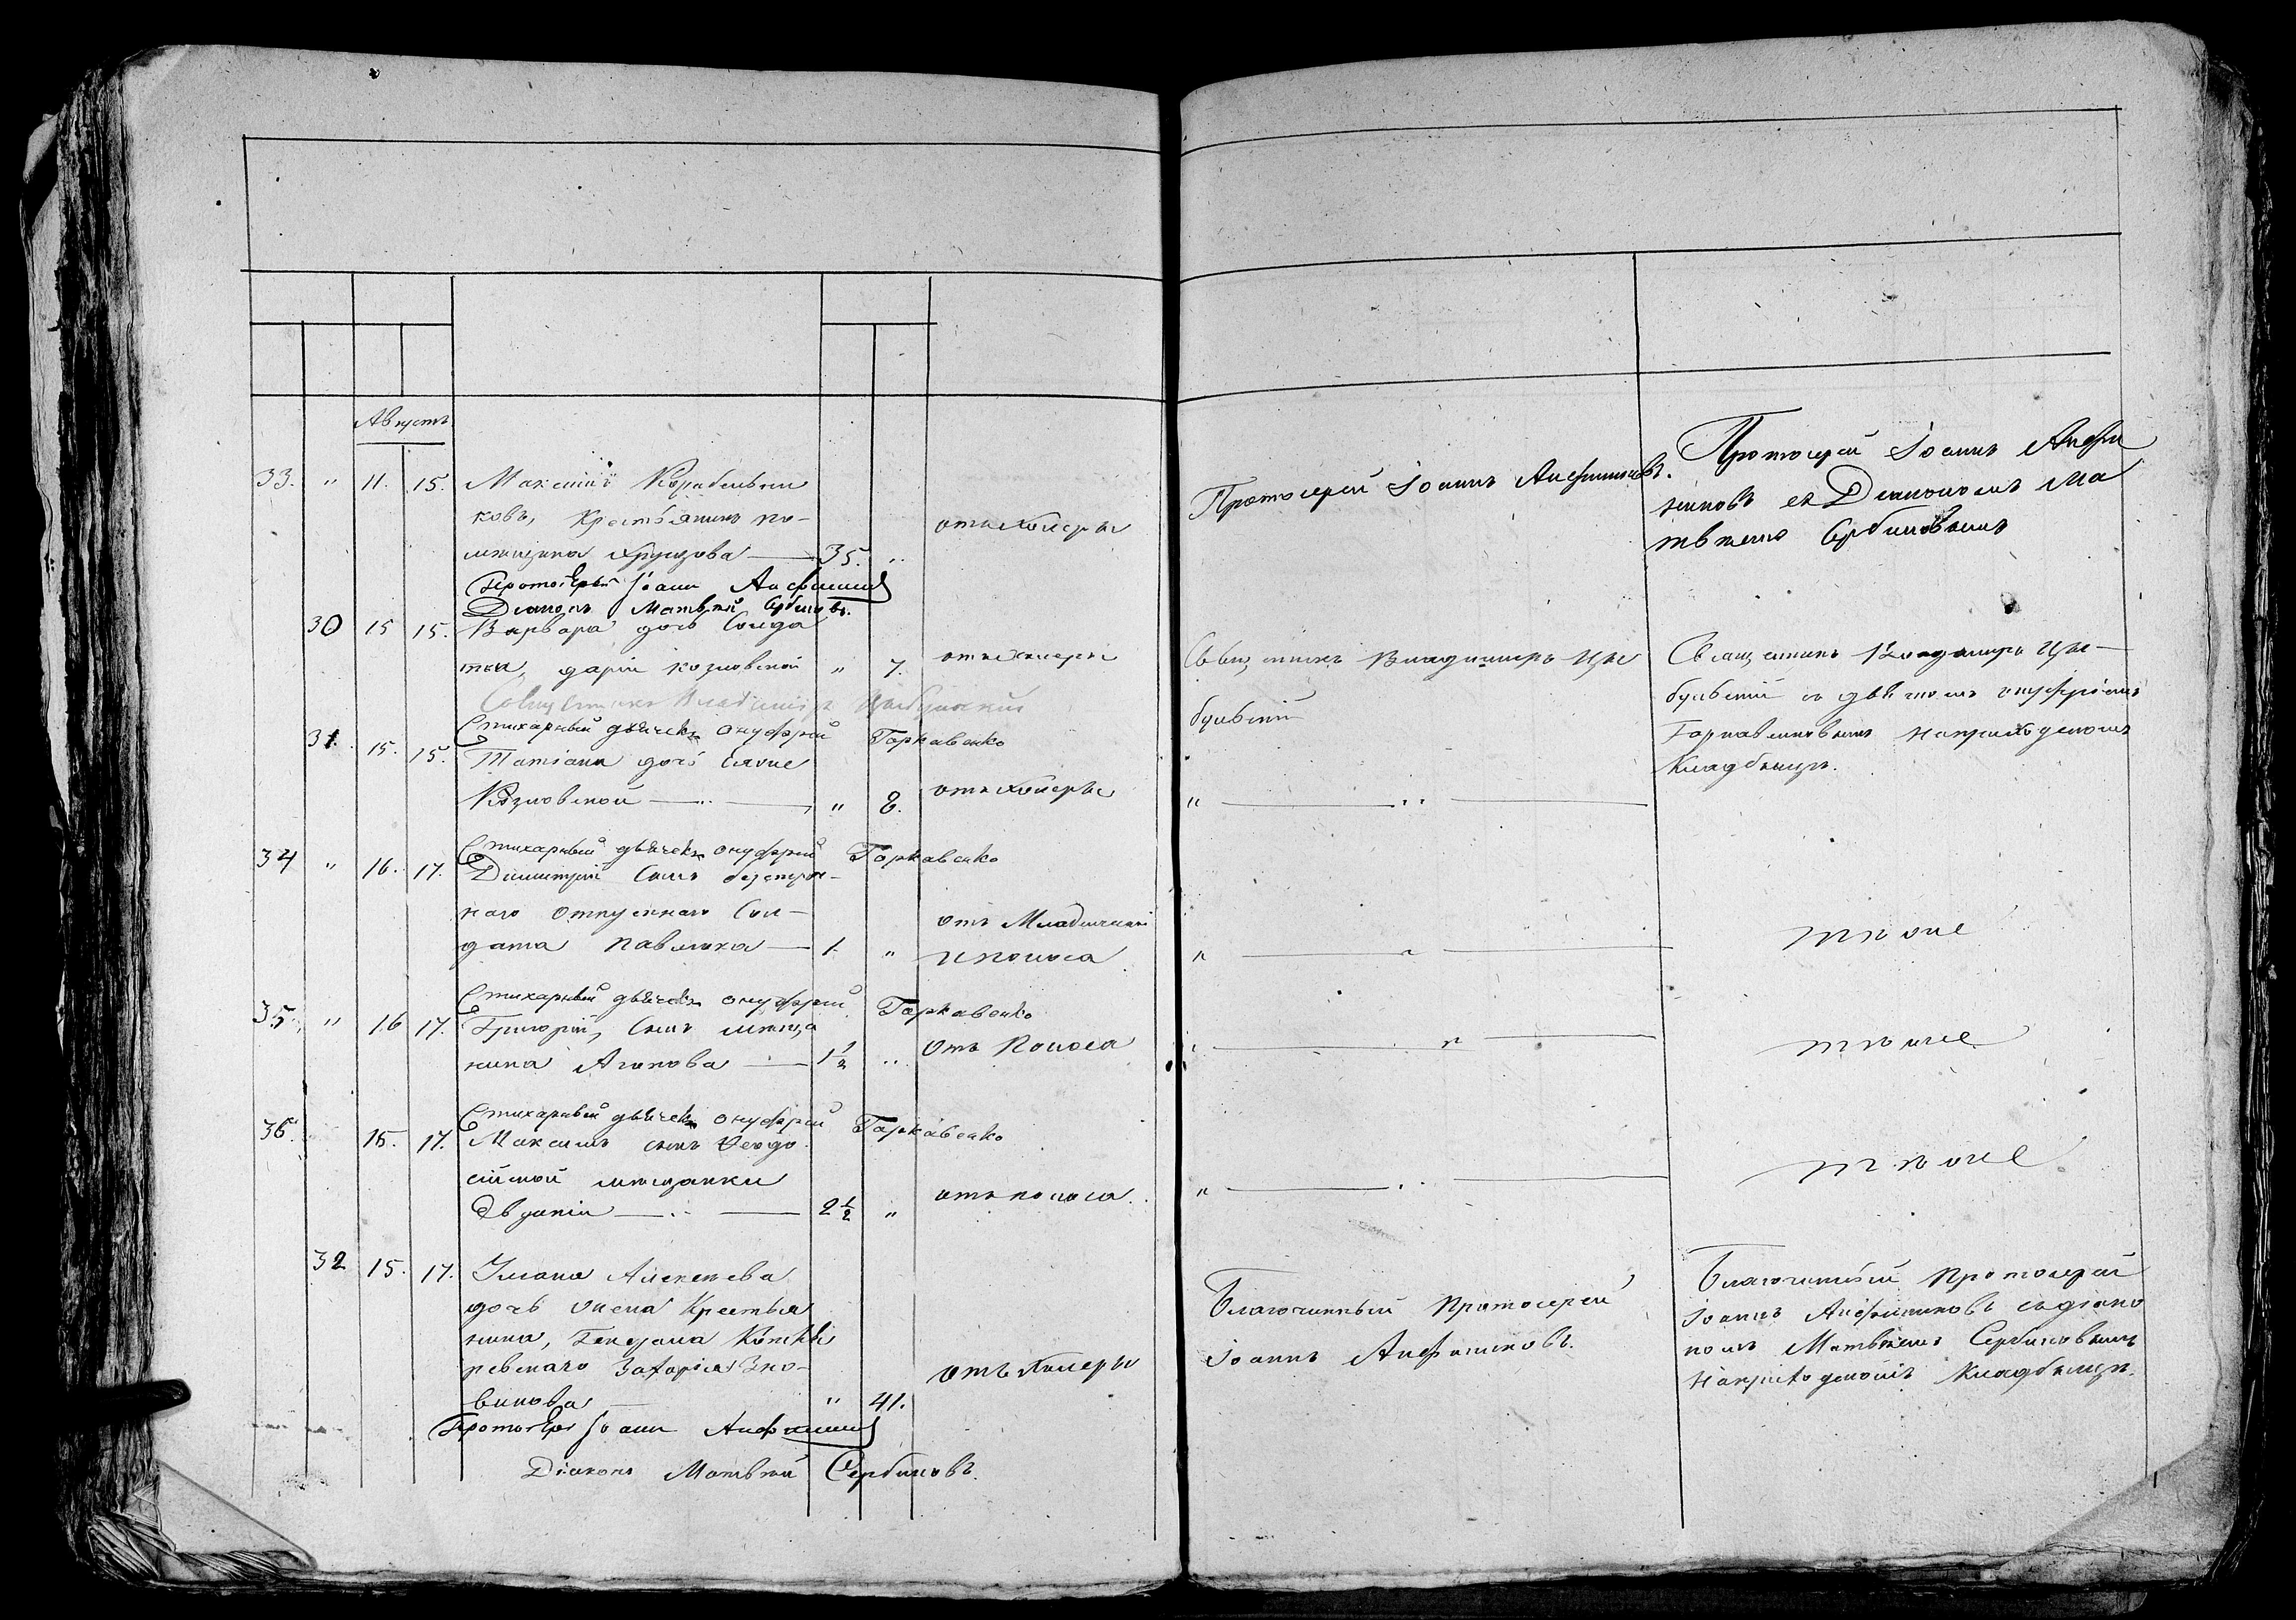 Августъ
33. " 11. 15. Максимъ Корабельни
ковъ, Крестьянинъ по-
мѣщика Хрущова — 35. "
отъ холеры
Протоіерей Іоаннъ Анфимовъ.
Протоіерей Іоаннъ
съ Діакономъ Ма
твѣемъ Сербиновымъ
Протоіерей Іоаннъ
Діаконъ Матвѣй Сербиновъ.
30 15 15. Варвара дочь Солда
тки, Даріи Козловской " 7.
отъ холеры
Священникъ Владиміръ Цы
бульскій
Священникъ Владиміръ Цы-
бульскій съ дьячкомъ Онуфріемъ
Горкавенковымъ на приходскомъ
Кладбищѣ.
Священникъ Владиміръ Цыбульскій
Стихарный дьячекъ Онуфрій Горкавенко
31. 15. 15. Татіана дочь ея же
Козловской — " — " 8.
отъ холеры
" — " —
Стихарный дьячекъ Онуфрій Горкавенко
34 " 16. 17. Димитрій Сынъ безсроч-
наго отпускнаго Сол-
дата Павленка — 1. "
отъ Младенческой
и поноса
" — " —
тѣ же
Стихарный дьячекъ Онуфрій Горкавенко
35. " 16 17. Григорій, Сынъ мѣща
нина Агапова — 1½ "
отъ Поноса
" — " —
тѣ же
Стихарный дьячекъ Онуфрій Горкавенко
36. 15. 17. Максимъ сынъ Ѳеодо
сійской мѣщанки
Евдокіи — " — 2½ "
отъ поноса.
" — " —
тѣ же
32 15. 17. Уліана Алексѣева
дочь жена Крестья
нина,
Захарія
" 41.
отъ холеры
Благочинный Протоіерей
Іоаннъ
Благочинный Протоіерей
Іоаннъ съ діако
номъ Матвѣемъ Сербиновымъ
на приходскомъ Кладбищѣ.
Протоіерей Іоаннъ
Діаконъ Матвѣй Сербиновъ.